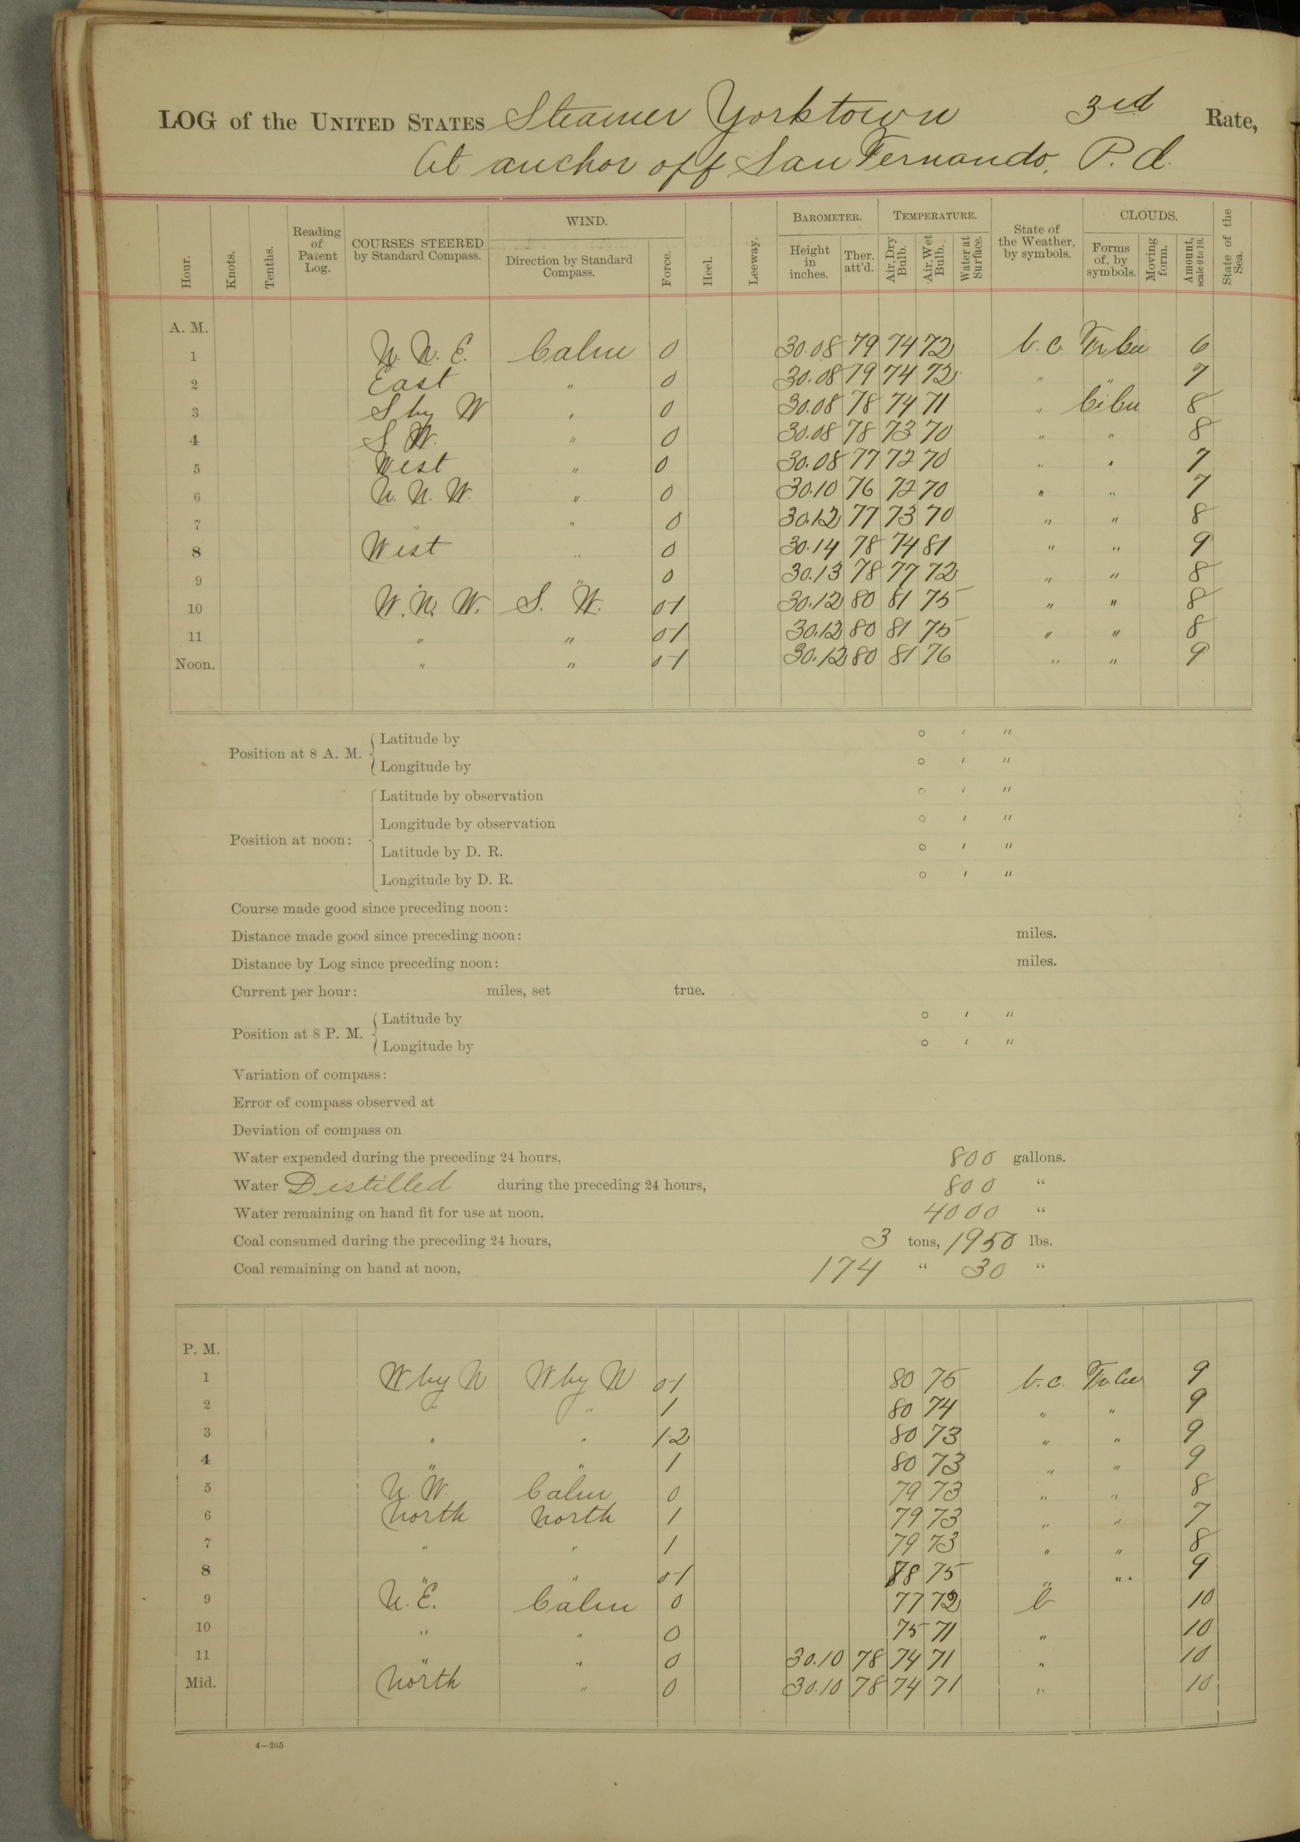 LOG of the UNITED STATES Steamer Yorktown 3rd Rate,
At anchor off San Fernando, P. d.
Hour. Knots. Tenths. Reading of Patent Log. COURSES STEERED by Standard Compass. WIND. Direction by Standard Compass. Force. Heel. Leeway. BAROMETER. Height in inches. Ther. att'd. TEMPERATURE. Air, Dry Bulb. Air, Wet Bulb. Water at Surface. State of the Weather, by symbols. CLOUDS. Forms of, by symbols. Moving form. Amount, scale 0 to 10. State of the Sea.
A. M.
1 N. N. E. Calm 0 30.08 79 74 72 b.c. Fr Cu 6
2 East " 0 30.08 79 74 72 " " 7
3 S by W " 0 30.08 78 74 71 " Ci Cu 8
4 S W. " 0 30.08 78 73 70 " " 8
5 West " 0 30.08 77 72 70 " " 7
6 N. N. W. " 0 30.10 76 72 70 " " 7
7 " " 0 30.12 77 73 70 " " 8
8 West " 0 30.14 78 74 81 " " 9
9 " " 0 30.13 78 77 72 " " 8
10 W. N. W. S. W. 0-1 30.12 80 81 75 " " 8
11 " " 0-1 30.12 80 81 75 " " 8
Noon. " " 0-1 30.12 80 81 76 " " 9
Position at 8 A. M. Latitude by ° ′ ″
Longitude by ° ′ ″
Position at noon: Latitude by observation ° ′ ″
Longitude by observation ° ′ ″
Latitude by D. R. ° ′ ″
Longitude by D. R. ° ′ ″
Course made good since preceding noon:
Distance made good since preceding noon: miles.
Distance by Log since preceding noon: miles.
Current per hour: miles, set true.
Position at 8 P. M. Latitude by ° ′ ″
Longitude by ° ′ ″
Variation of compass:
Error of compass observed at
Deviation of compass on
Water expended during the preceding 24 hours, 800 gallons.
Water Distilled during the preceding 24 hours, 800 "
Water remaining on hand fit for use at noon, 4000 "
Coal consumed during the preceding 24 hours, 3 tons, 1950 lbs.
Coal remaining on hand at noon, 174 " 30 "
P. M.
1 W by N W by N 0-1 80 75 b.c. Fr Cu 9
2 " " 1 80 74 " " 9
3 " " 1-2 80 73 " " 9
4 " " 1 80 73 " " 9
5 N. W. Calm 0 79 73 " " 8
6 North North 1 79 73 " " 7
7 " " 1 79 73 " " 8
8 " " 0-1 78 75 " " 9
9 N. E. Calm 0 77 72 b 10
10 " " 0 75 71 " 10
11 " " 0 30.10 78 74 71 " 10
Mid. North " 0 30.10 78 74 71 " 10
4—205